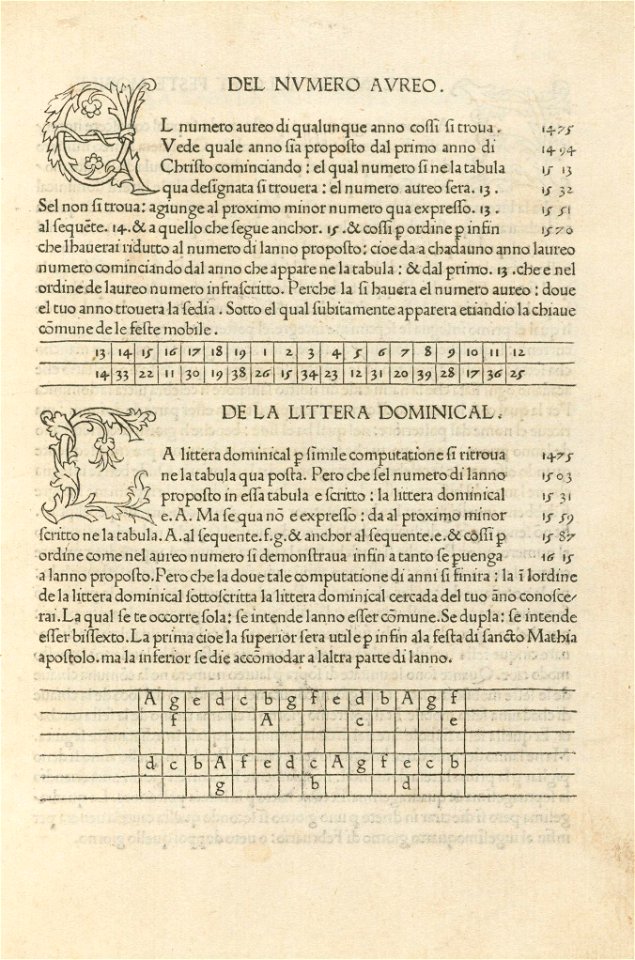 DEL NVMERO AVREO.
EL numero aureo di qualunque anno cossi si troua. 1475
Vede quale anno sia proposto dal primo anno di 1494
Christo cominciando: el qual numero si ne la tabula 15 13
qua designata si trouera: el numero aureo sera. 13. 15 32
Sel non si troua: agiunge al proximo minor numero qua expresso. 13. 15 51
al sequēte. 14. & a quello che segue anchor. 15. & cossi p ordine p infin 1570
che lhauerai ridutto al numero di lanno proposto: cioe da a chadauno anno laureo
numero cominciando dal anno che appare ne la tabula: & dal primo. 13. che e nel
ordine de laureo numero infrascritto. Perche la si hauera el numero aureo: doue
el tuo anno trouera la sedia. Sotto el qual subitamente apparera etiandio la chiaue
cōmune de le feste mobile.
13 14 15 16 17 18 19 1 2 3 4 5 6 7 8 9 10 11 12
14 33 22 11 30 19 38 26 15 34 23 12 31 20 39 28 17 36 25
DE LA LITTERA DOMINICAL.
LA littera dominical p simile computatione si ritroua 1475
ne la tabula qua posta. Pero che sel numero di lanno 1503
proposto in essa tabula e scritto: la littera dominical 15 31
e. A. Ma se qua nō e expresso: da al proximo minor 15 59
scritto ne la tabula. A. al sequente. f.g. & anchor al sequente. e. & cossi p 15 87
ordine come nel aureo numero si demonstraua infin a tanto se puenga 16 15
a lanno proposto. Pero che la doue tale computatione di anni si finira: la ī lordine
de la littera dominical sottoscritta la littera dominical cercada del tuo āno conosce-
rai. La qual se te occorre sola: se intende lanno esser cōmune. Se dupla: se intende
esser bissexto. La prima cioe la superior sera utile p infin ala festa di sancto Mathia
apostolo. ma la inferior se die accōmodar a laltra parte di lanno.
A g e d c b g f e d b A g f
f A c e
d c b A f e d c A g f e c b
g b d